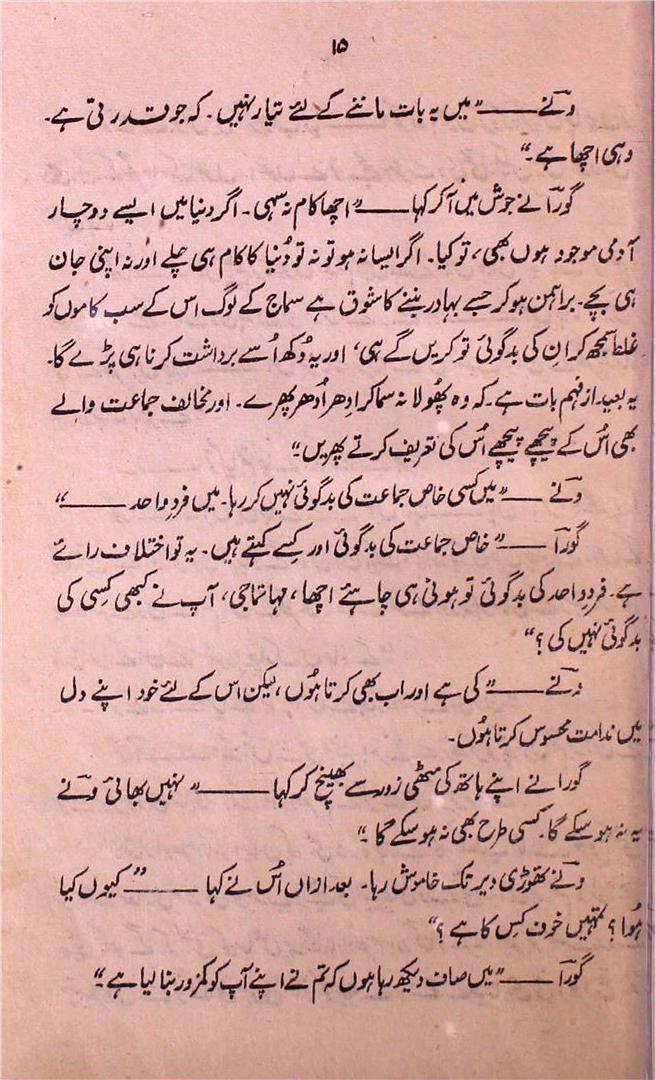 ۱۵
ونےؔ ـــــــ "میں یہ بات ماننے کے لئے تیار نہیں۔ کہ جو قدرتی ہے۔
وہی اچھا ہے۔"
گوراؔ نے جوش میں آ کر کہا ـــــــ "اچھا کام نہ سہی۔ اگر دنیا میں ایسے دو چار
آدمی موجود ہوں بھی، تو کیا۔ اگر ایسا نہ ہو تو نہ تو دُنیا کا کام ہی چلے اور نہ اپنی جان
ہی بچے۔ براہمن ہو کر جسے بہادر بننے کا شوق ہے سماج کے لوگ اس کے سب کاموں کو
غلط سمجھ کر اِن کی بدگوئی تو کریں گے ہی، اور یہ دُکھ اُسے برداشت کرنا ہی پڑے گا۔
یہ بعید از فہم بات ہے۔ کہ وہ پھُولا نہ سما کر اِدھر اُدھر پھرے۔ اور مخالف جماعت والے
بھی اُس کے پیچھے پیچھے اُس کی تعریف کرتے پھریں۔"
ونےؔ ـــــــ "میں کسی خاص جماعت کی بدگوئی نہیں کر رہا۔ میں فردِ واحد ـــــــ"
گوراؔ ـــــــ "خاص جماعت کی بدگوئی اور کِسے کہتے ہیں۔ یہ تو اختلاف رائے
ہے۔ فردِ واحد کی بدگوئی تو ہونی ہی چاہئے اچھا، مہاتما جی، آپ نے کبھی کِسی کی
بدگوئی نہیں کی؟"
ونےؔ ـــــــ "کی ہے اور اب بھی کرتا ہُوں، لیکن اس کے لئے خود اپنے دل
میں ندامت محسوس کرتا ہُوں۔
گورا نے اپنے ہاتھ کی مٹھی زور سے بھینچ کر کہا ـــــــ "نہیں بھائی ونےؔ
یہ نہ ہو سکے گا۔ کسی طرح بھی نہ ہو سکے گا۔"
ونےؔ تھوڑی دیر تک خاموش رہا۔ بعد ازاں اُس نے کہا ـــــــ "کیوں کیا
ہُوا؟ تمہیں خوف کِس کا ہے؟"
گوراؔ ـــــــ "میں صاف دیکھ رہا ہوں کہ تم نے اپنے آپ کو کمزور بنا لیا ہے۔"